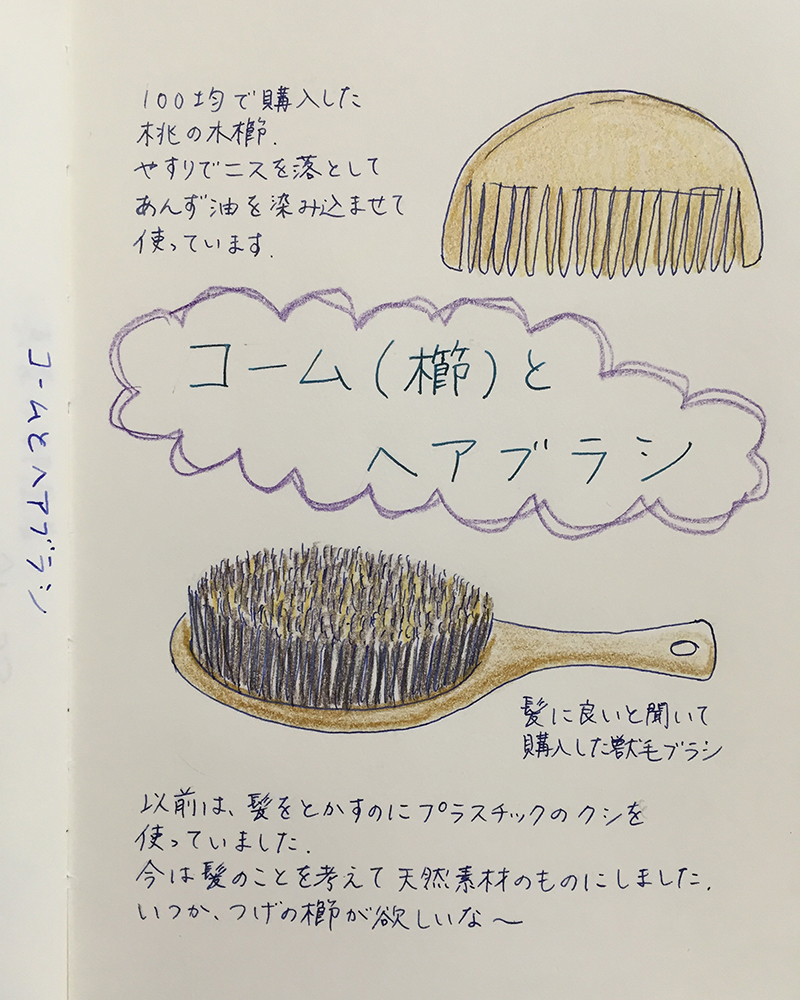 100均で購入した
桃の木櫛.
やすりでニスを落として
あんず油を染み込ませて
使っています.
コーム(櫛)と
ヘアブラシ
コームとヘアブラシ
髪に良いと聞いて
購入した獣毛ブラシ
以前は、髪をとかすのにプラスチックのクシを
使っていました.
今は髪のことを考えて天然素材のものにしました.
いつか、つげの櫛が欲しいな〜